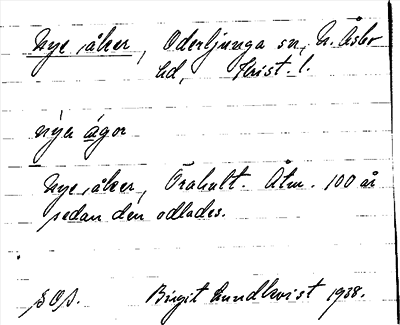 Nye åker, Oderljunga sn, N. Åsbo
hd, Krist. l.
nya ågor
Nye åker, Örahult. Åtm. 100 år
sedan den odlades.
Birgit Lundkvist 1938.